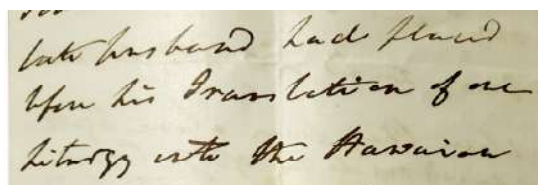 late husband had placed
upon his Translation of our
Liturgy into the Hawaian